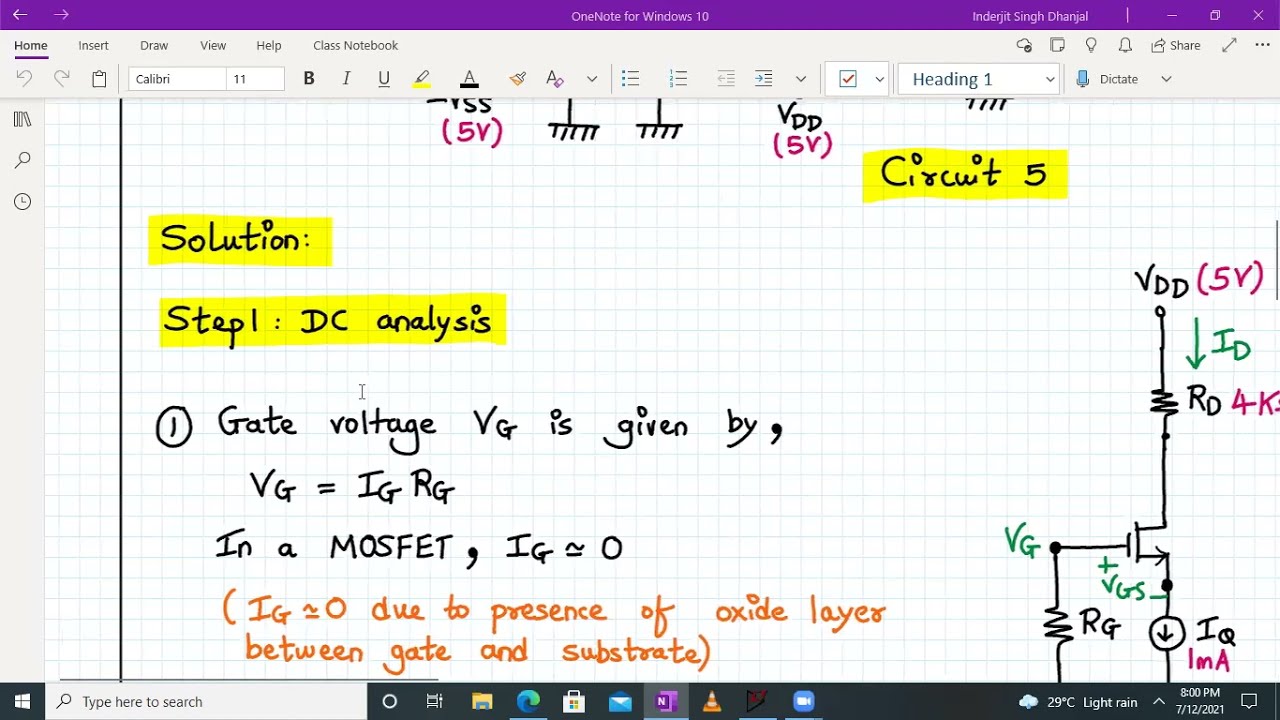 OneNote for Windows 10
Inderjit Singh Dhanjal
Home Insert Draw View Help Class Notebook
Share
Calibri 11 B I U A A Heading 1 Dictate
-VSS
(5V)
VDD
(5V)
Circuit 5
Solution:
Step1: DC analysis
① Gate voltage VG is given by,
VG = IG RG
In a MOSFET, IG ≃ 0
(IG ≃ 0 due to presence of oxide layer
between gate and substrate)
VDD (5V)
ID
RD 4K
VG
+
VGS -
RG
IQ
1mA
Type here to search
29°C Light rain
8:00 PM
7/12/2021